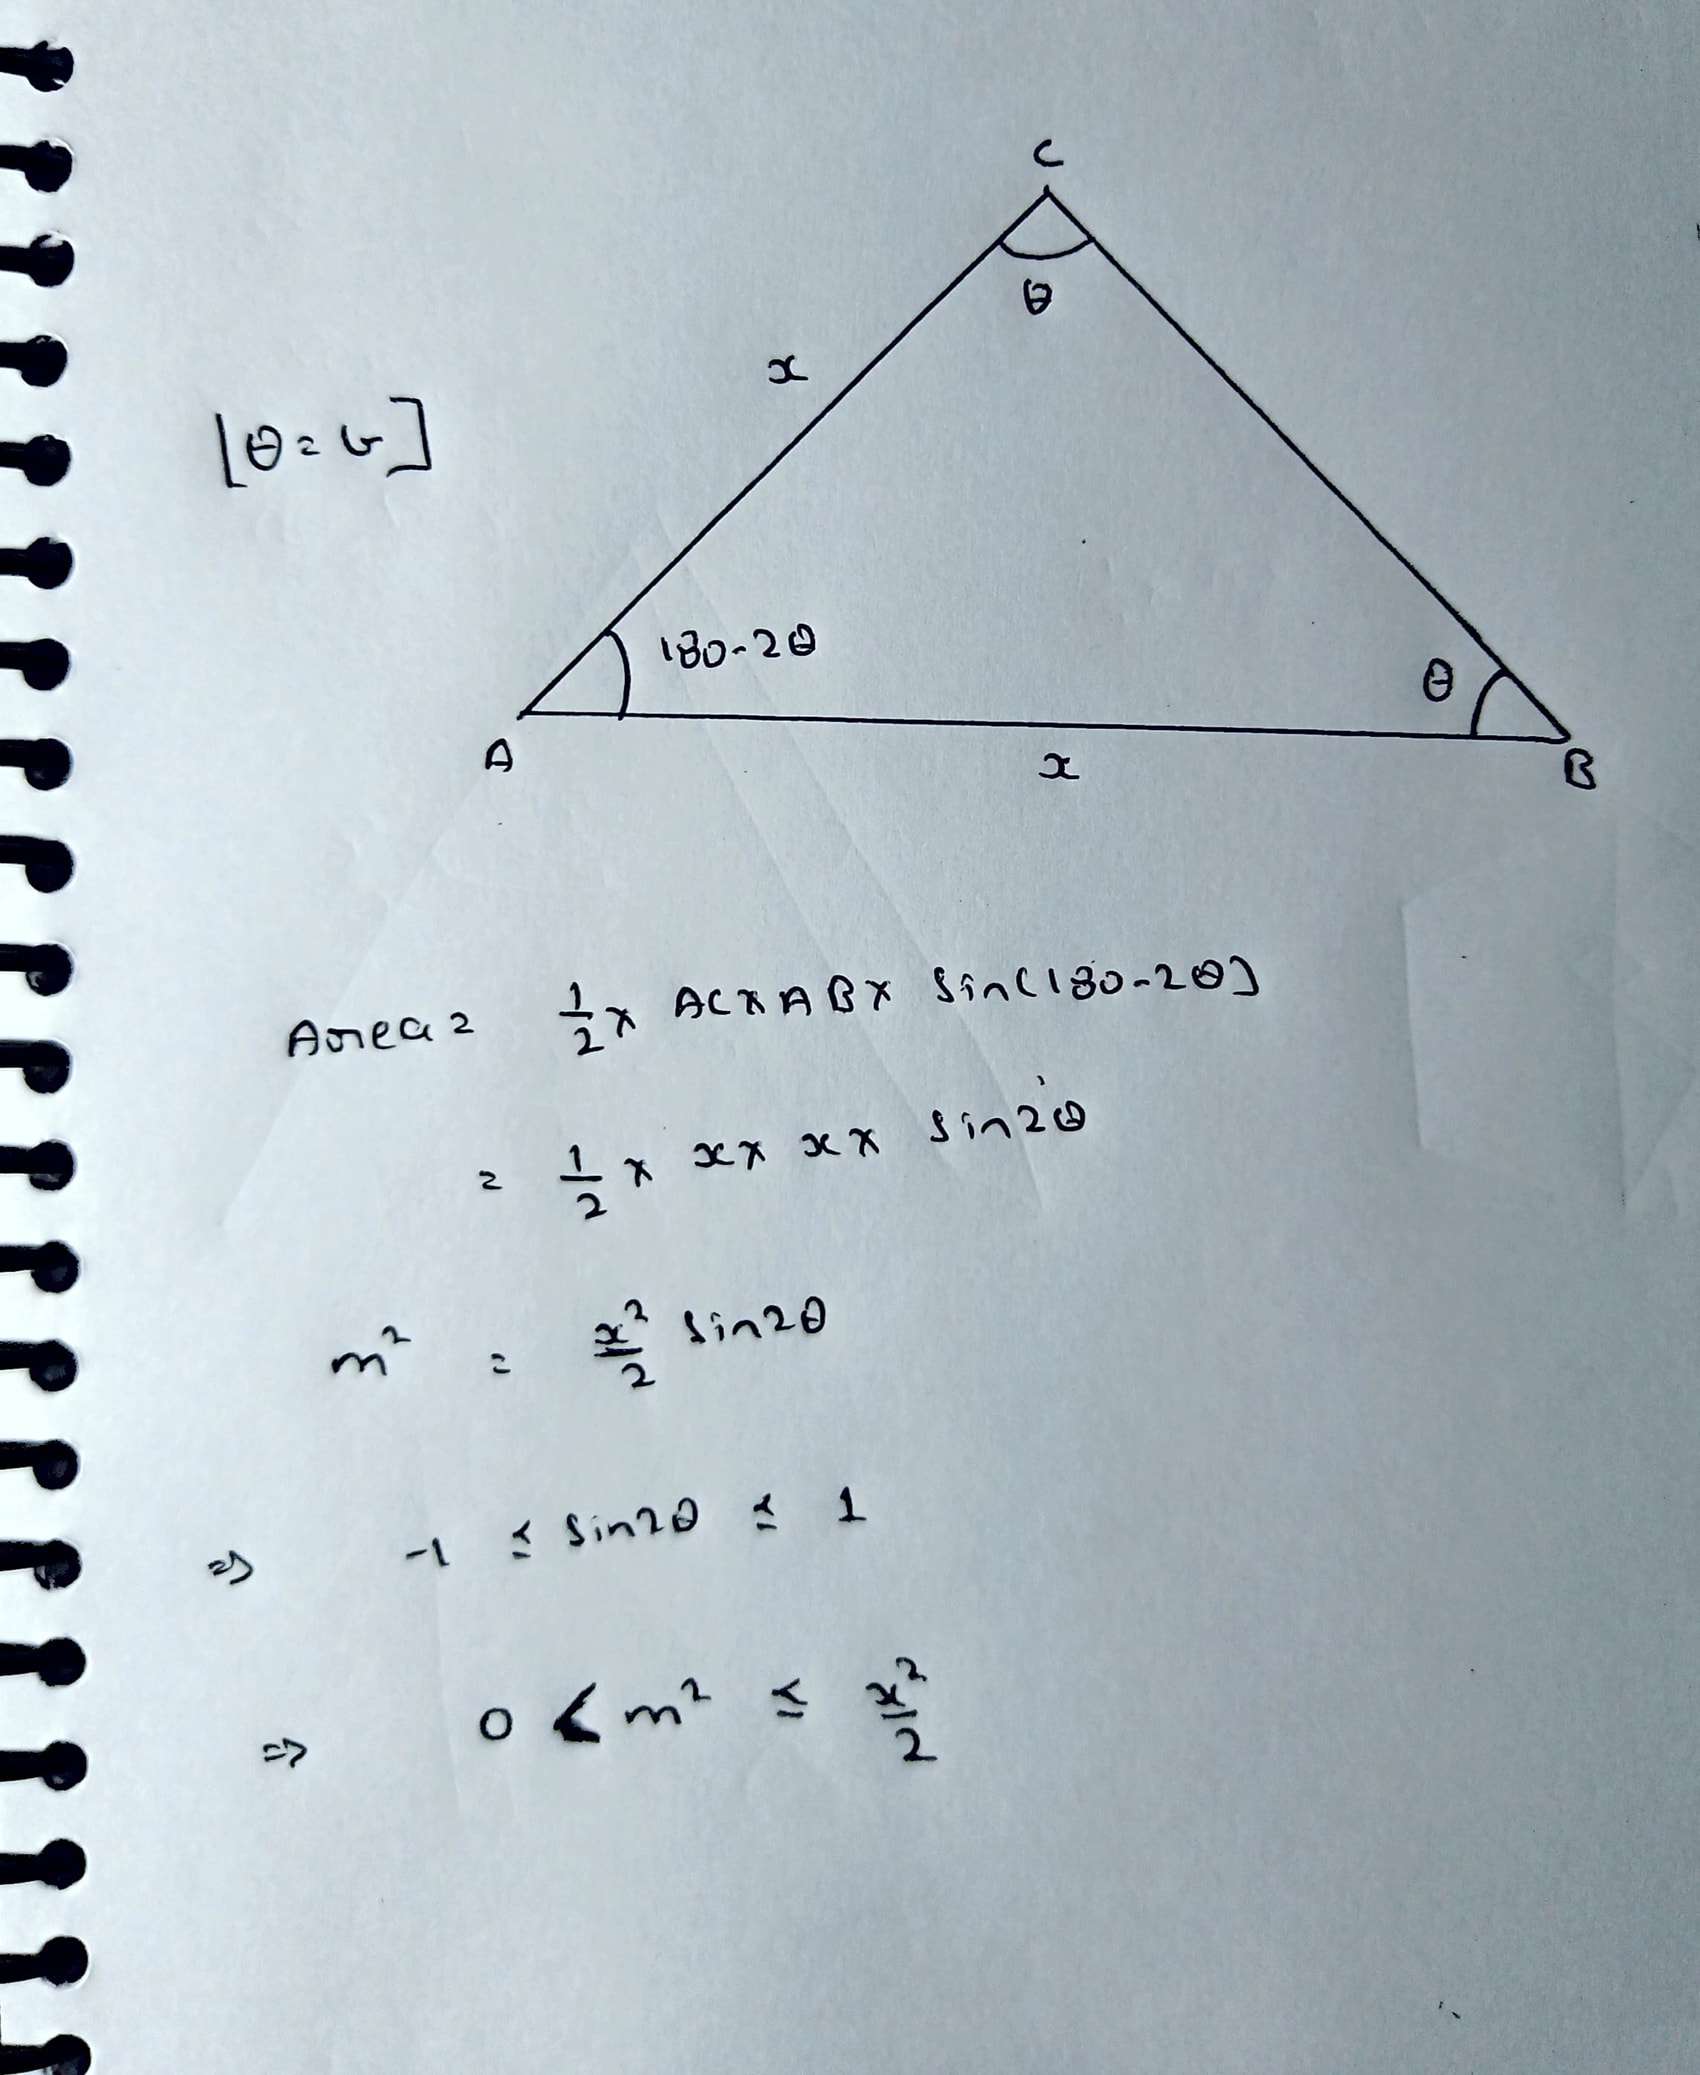 C
θ
x
[θ = b]
180-2θ
θ
A
x
B
Area = 1/2 x AC x AB x sin(180-2θ)
= 1/2 x x x x x sin2θ
m² = x²/2 sin2θ
=> -1 ≤ sin2θ ≤ 1
=> 0 < m² ≤ x²/2